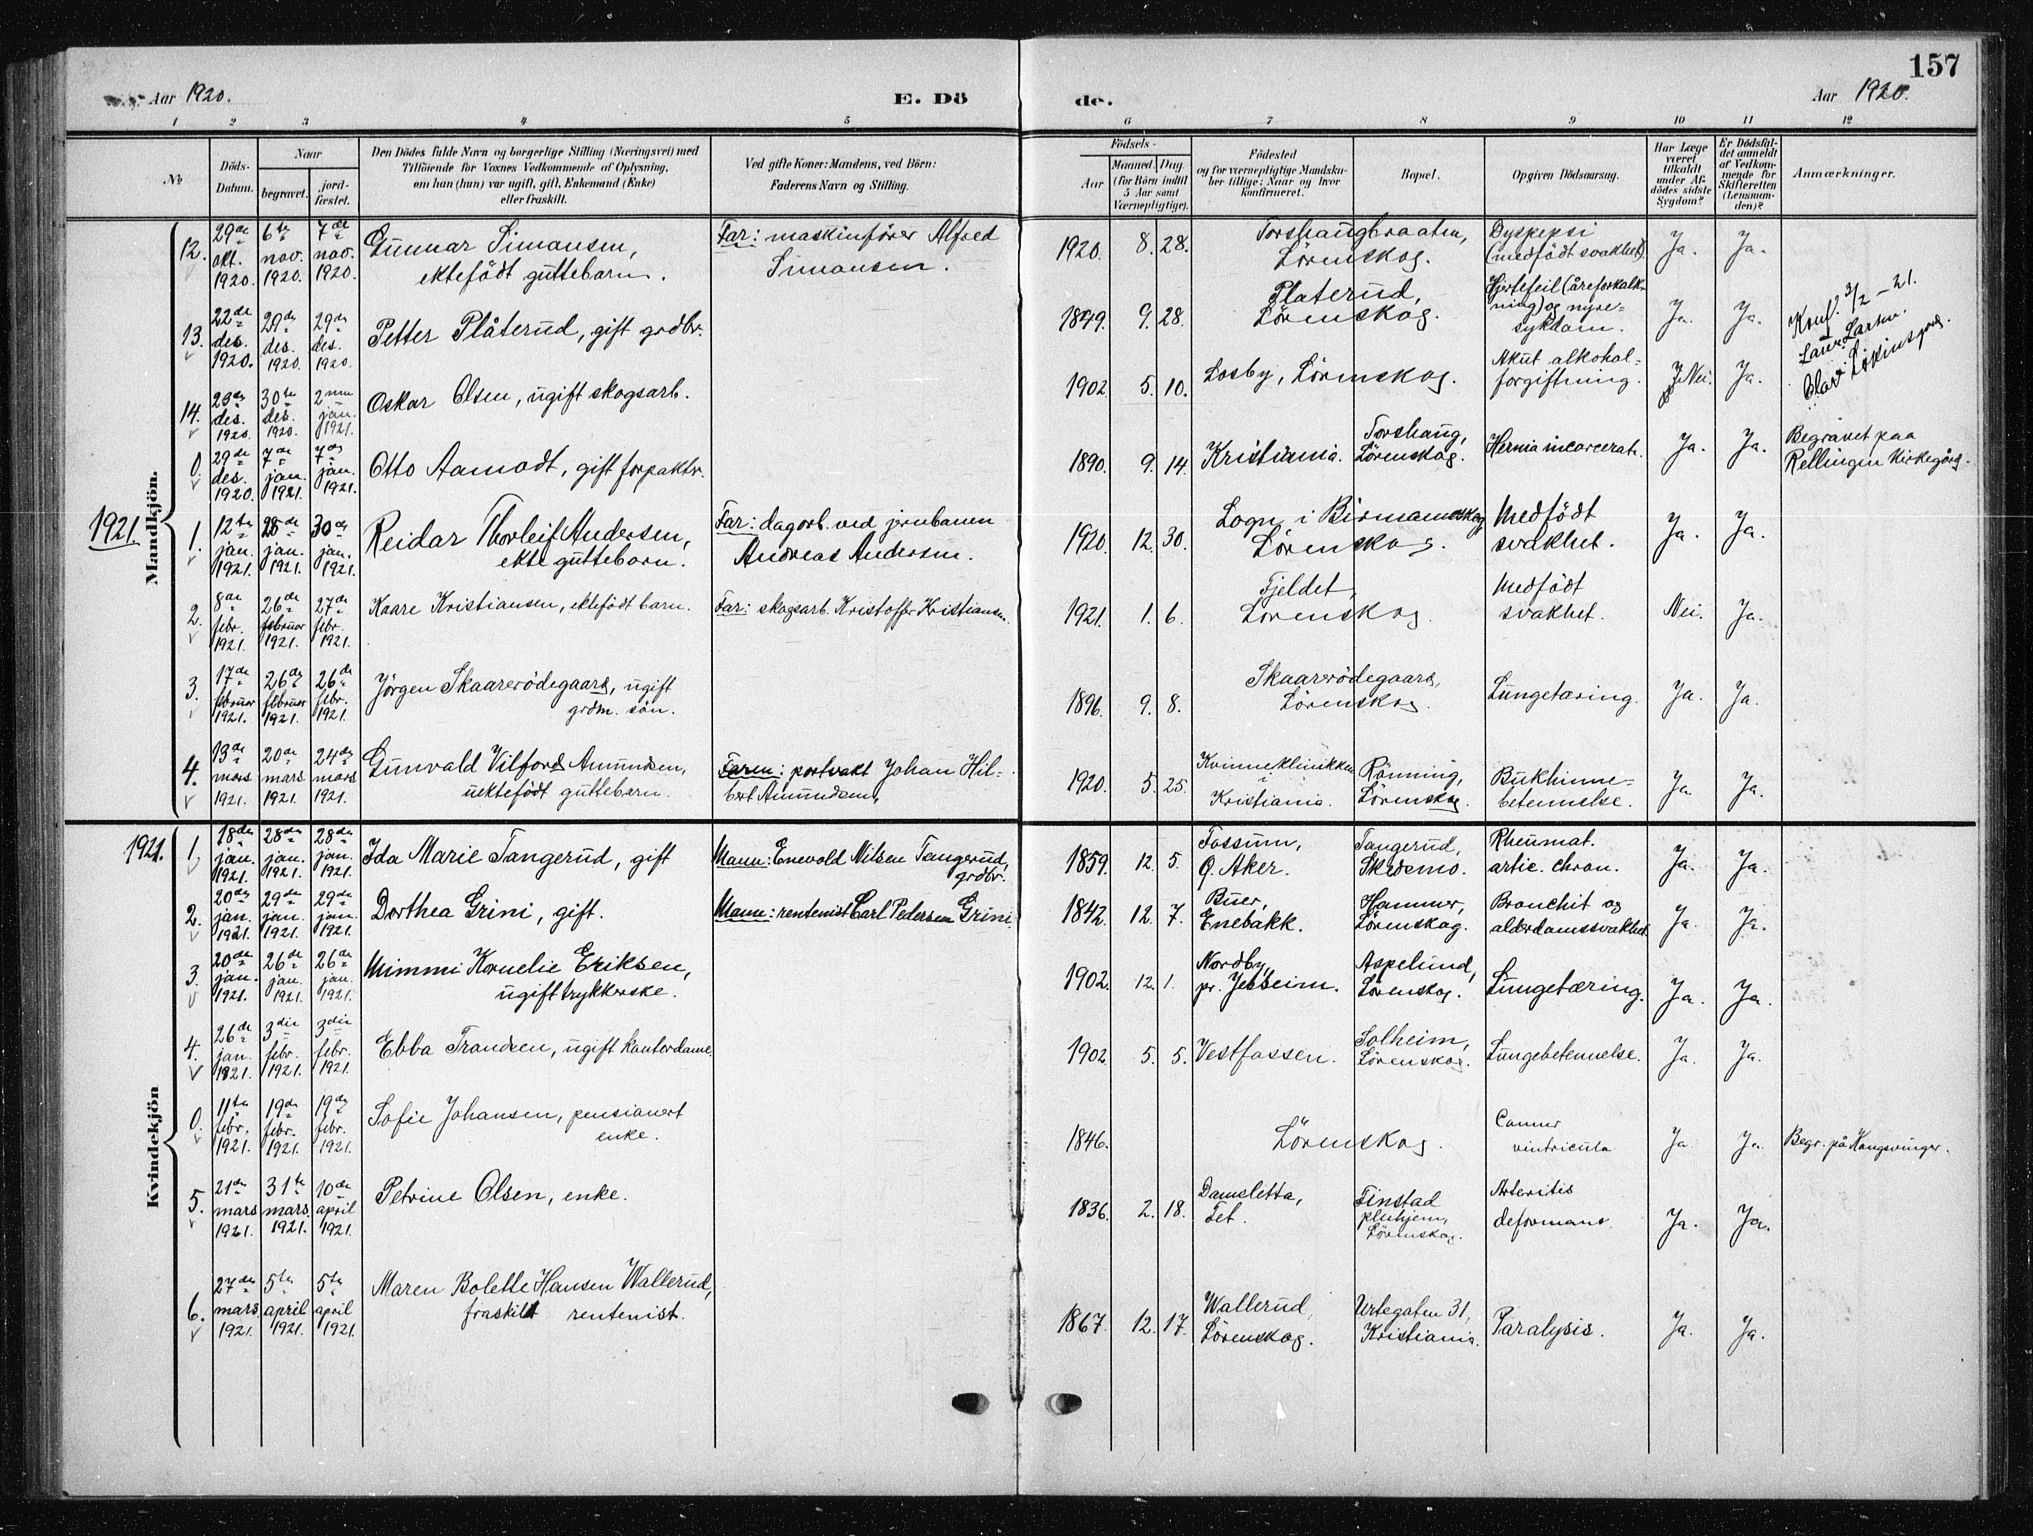 157
Aar 1920. E. Dö de. Aar 1920.
1 2 3 4 5 6 7 8 9 10 11 12
No
Döds-Datum.
Naar
begravet.
jord-fæstet.
Den Dödes fulde Navn og borgerlige Stilling (Næringsvei) med
Tilföiende for Voxnes Vedkommende af Oplysning,
om han (hun) var ugift, gift, Enkemand (Enke)
eller fraskilt.
Ved gifte Koner: Mandens, ved Börn:
Faderens Navn og Stilling.
Födsels-
Aar
Maaned. Dag.
(for Börn indtil
5 Aar samt
Værnepligtige).
Födested
og for værnepligtige Mandska-
ber tillige: Naar og hvor
konfirmeret.
Bopæl.
Opgiven Dödsaarsag.
Har Læge
været
tilkaldt
under Af-
dödes sidste
Sygdom?
Er Dödsfal-
det anmeldt
af Vedkom-
mende for
Skifteretten
(Lensman-
den)?
Anmærkninger.
Mandkjön.
12. 29de okt. 1920. 6te nov. 1920. 7de nov. 1920. Gunnar Simonsen, ektefödt guttebarn. Far: maskinförer Alfred Simonsen. 1920. 8. 28. Torshaugbraaten, Lörenskog. Dyspepsi (medfödt svakhet). Ja. Ja.
13. 22de des. 1920. 29de des. 1920 29de des. 1920. Petter Plåterud, gift grdbr. 1849. 9. 28. Platerud, Lörenskog. Hjertefeil (åreforkalkning) og nyresykdom. Ja. Ja.
Konf. 3/2 - 21.
14. 23de des. 1920. 30te des. 1920. 2nen jan. 1921. Oskar Olsen, ugift skogsarb. 1902. 5. 10. Losby, Lörenskog. Akut alkoholforgiftning. Nei. Ja.
0. 29de des. 1920. 7de jan. 1921. 7de jan. 1921. Otto Aamodt, gift forpaktr. 1890. 9. 14. Kristiania. Torshaug, Lörenskog. Hernia incarcerat. Ja. Ja. Begravet paa Rellingen Kirkegård.
1921.
1. 12te jan. 1921. 28de jan. 1921. 30de jan. 1921. Reidar Thorleif Andersen, ekte guttebarn. Far: dagarb. ved jernbanen Andreas Andersen. 1920. 12. 30. Logn i Lörenskog. Medfödt svakhet. Ja. Ja.
2. 8de febr. 1921. 26de februar 1921. 27de febr. 1921. Kaare Kristiansen, ektefödt barn. Far: skogsarb. Kristoffer Kristiansen. 1921. 1. 6. Fjeldet, Lörenskog. Medfödt svakhet. Nei. Ja.
3. 17de februar 1921. 26de februar 1921. 26de febr. 1921. Jörgen Skaarerödegaard, ugift grdm. sön. 1896. 9. 8. Skaarerödegaard, Lörenskog. Lungetæring. Ja. Ja.
4. 13de mars 1921. 20de mars 1921. 24de mars 1921. Gunvald Vilford Amundsen, uektefödt guttebarn. Faren: portvakt Johan Hilbert Amundsen, 1920. 5. 25. Kvinneklinikken i Kristiania. Rönning, Lörenskog. Bukhinnebetennelse. Ja. Ja.
Kvindekjön
1921.
1. 18de jan. 1921. 28de jan. 1921. 28de jan. 1921. Ida Marie Tangerud, gift Mann: Enevold Nilsen Tangerud, grdbr. 1859. 12. 5. Fossum, Ö. Aker. Tangerud, Skedsmo. Rheumat. artic. chron. Ja. Ja.
2. 20de jan. 1921. 29de jan. 1921. 29de jan. 1921. Dorthea Grini, gift. Mann: rentenist Carl Pedersen Grini. 1842. 12. 7. Buer, Enebakk. Hammer, Lörenskog. Bronchit og alderdomssvakhet. Ja. Ja.
3. 20de jan. 1921. 26de jan. 1921. 26de jan. 1921. Mimmi Kornelie Eriksen, ugift trykkerske. 1902. 12. 1. Nordby, pr. Jessheim. Aspelund, Lörenskog. Lungetæring. Ja. Ja.
4. 26de jan. 1921. 3die febr. 1921. 3die febr. 1921. Ebba Trondsen, ugift kontordame. 1902. 5. 5. Vestfossen. Solheim, Lörenskog. Lungebetennelse. Ja. Ja.
0. 11te febr. 1921. 19de febr. 1921. 19de febr. 1921. Sofie Johansen, pensionert enke. 1846. Lörenskog. Cancer ventricula Ja. Ja. Begr. på Kongsvinger.
5. 21de mars 1921. 31te mars. 1921. 10de april 1921. Petrine Olsen, enke. 1836. 2. 18. Damsletta, Fet. Finstad pleihjem, Lörenskog. Arteritis deformans. Ja. Ja.
6. 27de mars 1921. 5te april 1921. 5te april 1921. Maren Bolette Hansen Wallerud, fraskilt rentenist. 1867. 12. 17. Wallerud, Lörenskog. Urtegaten 31, Kristiania. Paralysis. Ja. Ja.